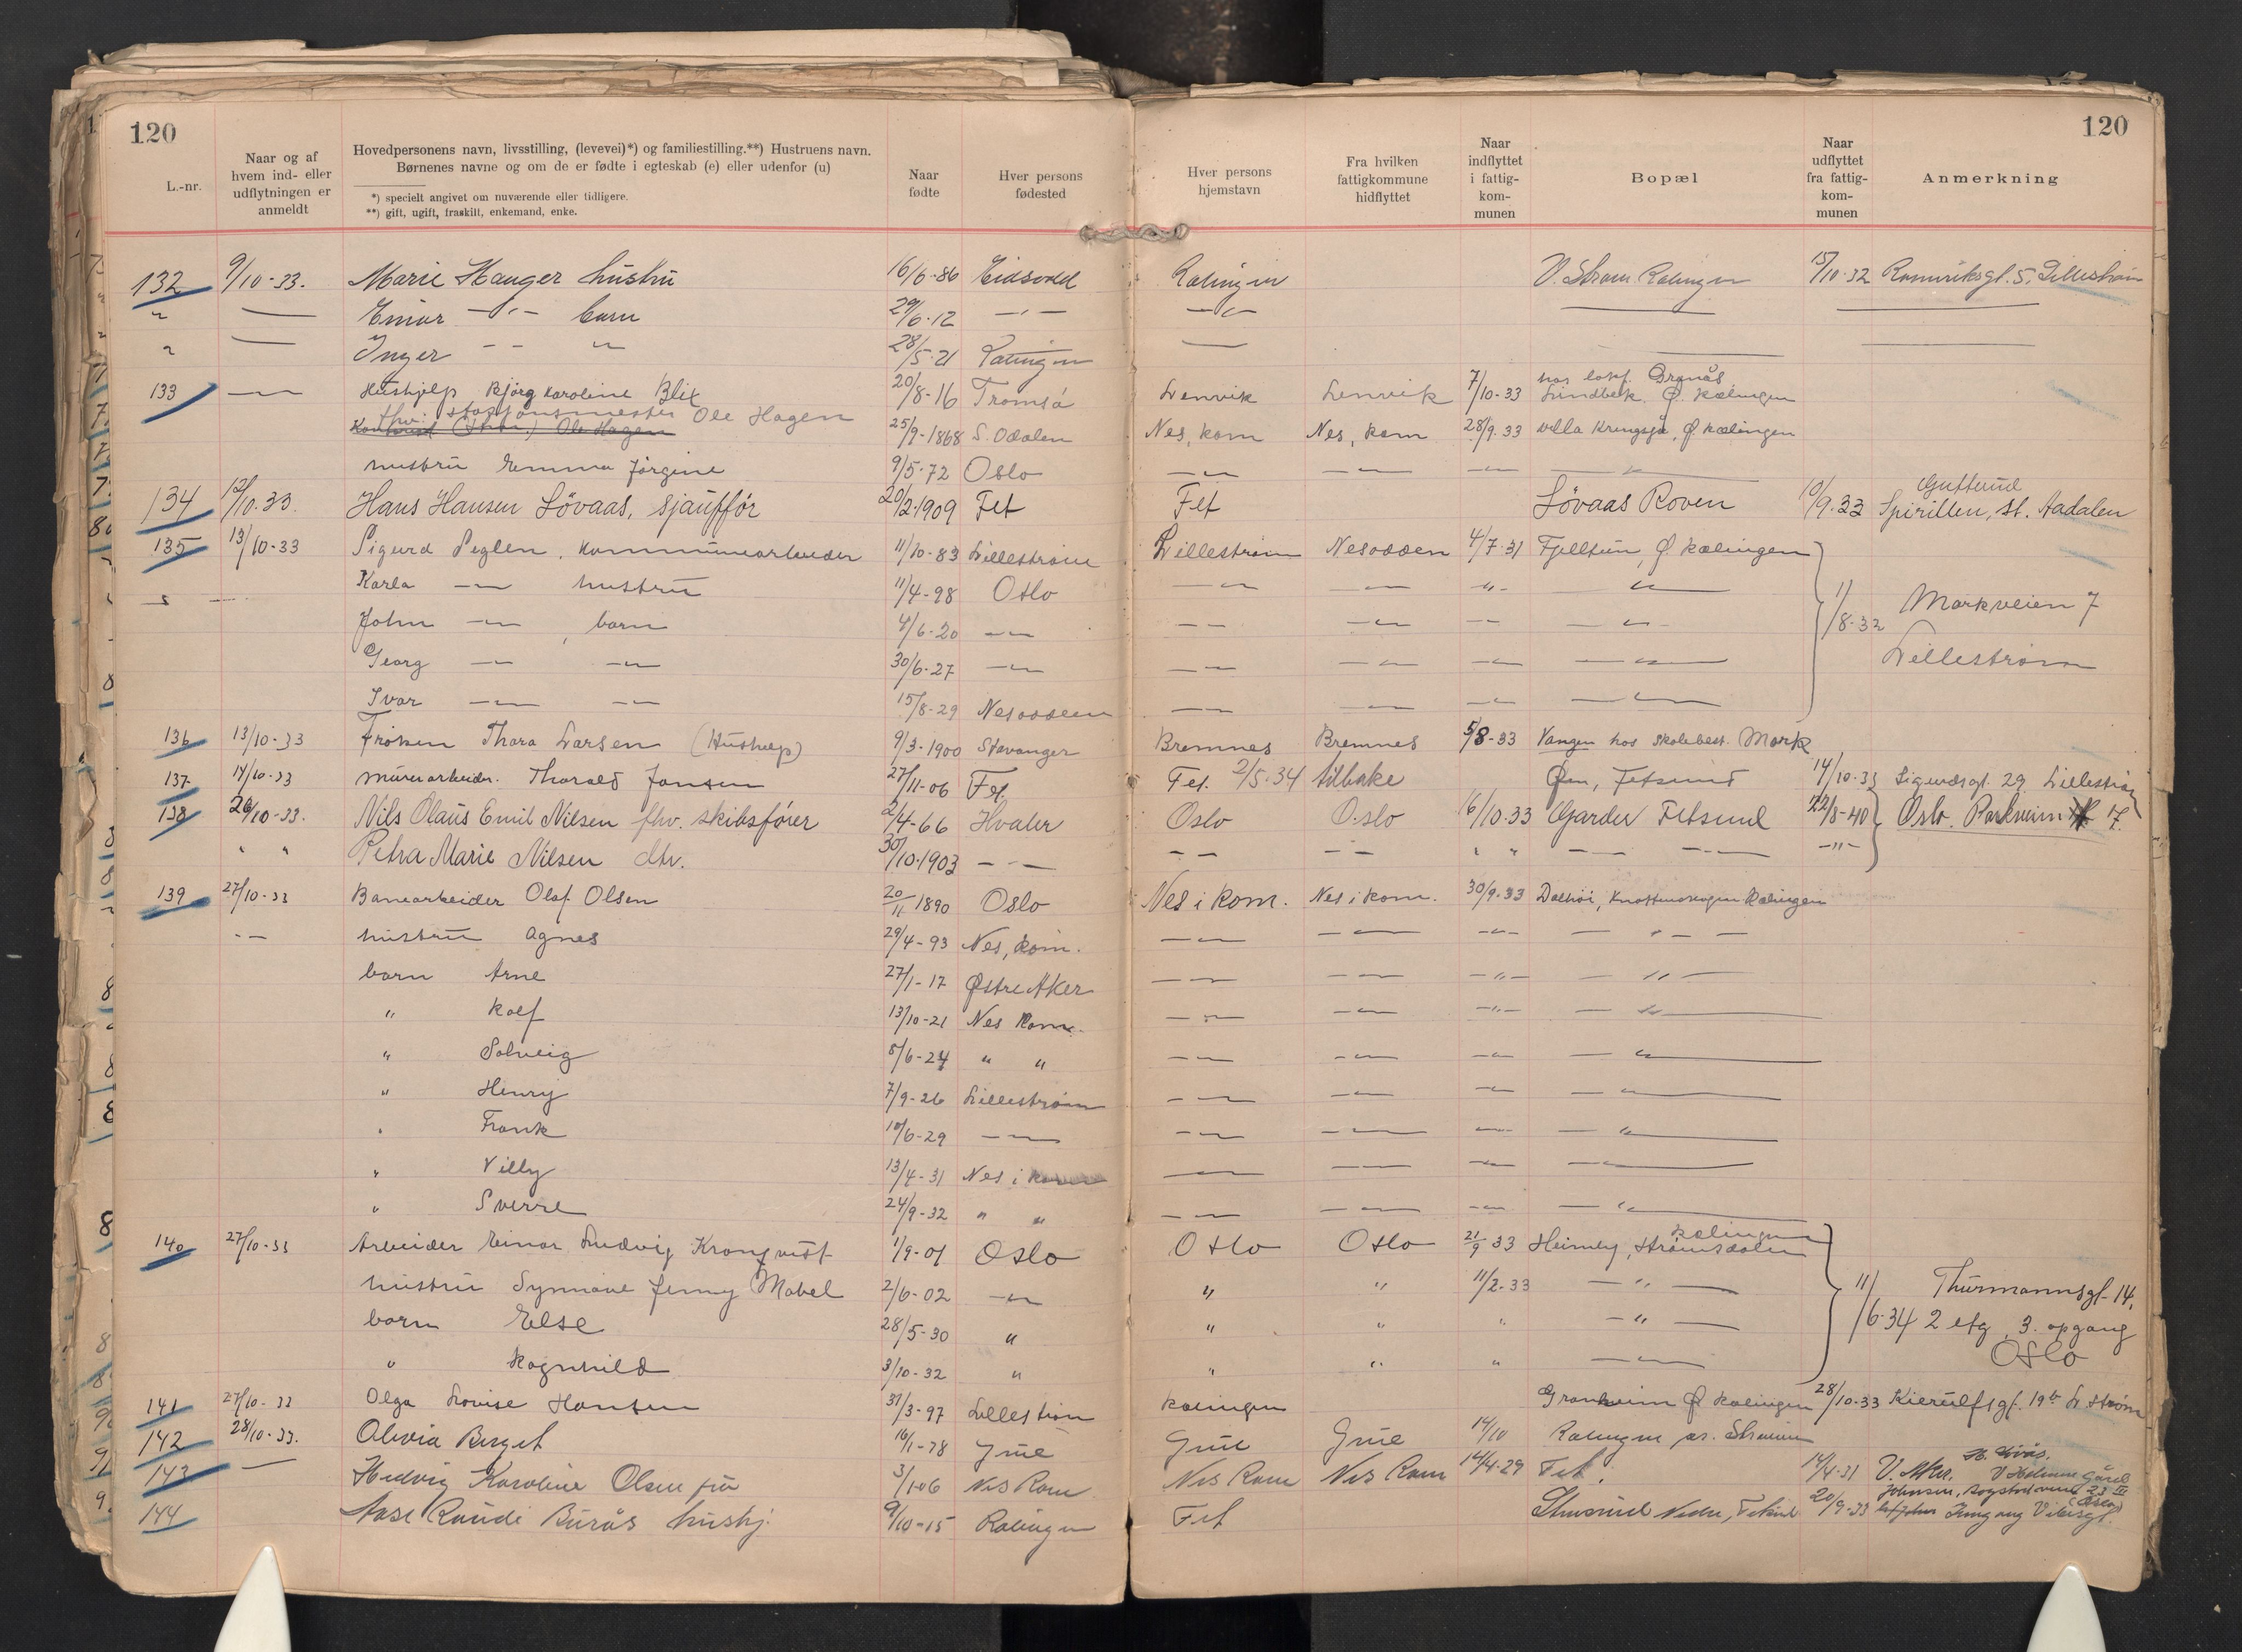 120
120
L.-nr.
Naar og af hvem ind- eller udflytningen er anmeldt
Hovedpersonens navn, livsstilling, (levevei)*) og familiestilling.**) Hustruens navn.
Børnenes navne og om de er fødte i egteskab (e) eller udenfor (u)
*) specielt angivet om nuværende eller tidligere.
**) gift, ugift, fraskilt, enkemand, enke.
Naar fødte
Hver persons fødested
Hver persons hjemstavn
Fra hvilken fattigkommune hidflyttet
Naar indflyttet i fattigkommunen
Bopæl
Naar udflyttet fra fattigkommunen
Anmerkning
132 9/10-33. Marie Hauger hustru 16/6-86 Eidsvold Rælingen V. Strøm Rælingen 15/10-32 Romeriksgt. 5. Lillestrøm
" — Einar -"- barn 29/6-12 -"- -"- —
" — Inger - - " 28/5-21 Rælingen — —
133 — Hushjelp Bjørg Karoline Blix 20/8-16 Tromsø Lenvik Lenvik 7/10-33 hos lokf. Granås Lindbek. Ø. Rælingen
fhv. stasjonsmester Ole Hagen 25/9-1868 S. Odalen Nes, Rom Nes, Rom 28/9-33 villa Krengsjå, Ø. Rælingen
hustru Emma Jørgine 9/5-72 Oslo -"- -"- -"- -"-
134 12/10-33. Hans Hansen Løvaas, sjauffør 20/2-1909 Fet Fet Løvaas Roven 10/9-33 Spirillen, st. Aadalen
135 13/10-33 Sigurd Seglen, kommunearbeider 11/10-83 Lillestrøm Lillestrøm Nesodden 4/7-31 Fjelltun, Ø. Rælingen
Karla -"- hustru 11/4-98 Oslo -"- -"- -"- -"- 11/8-32 Markveien 7
John -"-, barn 4/6-20 -"- -"- -"- -"- -"-
Georg -"- -"- 30/6-27 -"- -"- -"- -"- -"- Lillestrøm
Ivar -"- -"- 15/8-29 Nesodden -"- -"- -"- -"-
136 13/10-33 Frøken Thora Larsen (Hushelp) 9/3-1900 Stavanger Bremnes Bremnes 5/8-33 Vangen hos skolebest. Mørk
137 14/10-33 murerarbeider. Thorald Jansen 27/11-06 Fet. Fet. 2/5-34 tilbake Øen, Fetsund 14/10-33 Sigurdsgt. 29 Lillestrøm
138 26/10-33. Nils Olaus Emil Nilsen fhv. skibsfører 2/4-66 Hvaler Oslo Oslo 16/10-33 Garder Fetsund 22/8-40 Oslo. Parkveien 17.
" " Petra Marie Nilsen dtr. 30/10-1903 - - - - - - " " - - -"-
139 27/10-33 Banearbeider Olaf Olsen 20/11 1890 Oslo Nes i Rom. Nes i Rom. 30/9-33 Dalhøi, Rælingen
-- hustru Agnes 29/4-93 Nes, Rom. -"- -"- -"- - " -
barn Arne 27/1-17 Østre Aker -"- -"- -"- - " -
" Rolf 13/10-21 Nes Rom. -"- -"- -"- -"-
" Solveig 5/6-24 " " -"- -"- -"- -"-
" Henry 7/9-26 Lillestrøm -"- -"- -"- -"-
" Frank 10/6-29 -"- -"- -"- -"- -"-
" Villy 13/4-31 Nes i Rom -"- -"- -"- -"-
" Sverre 24/9-32 " " -"- -"- -"- -"-
140 27/10-33 Arbeider Einar Ludvig Kronqvist 1/9-01 Oslo Oslo Oslo 21/9 33 Heimly, Strømsdalen Rælingen
hustru Synnøve Jenny Mabel 2/6-02 -"- " " 11/2-33 - " - 11/6-34 Thurmannsgt. 14,
barn Else 28/5-30 " " " " - " - 2 etg, 3. opgang
" Ragnhild 3/10-32 " " " " -"- Oslo
141 27/10-33 Olga Lovise Hansen 31/3-97 Lillestrøm Rælingen Granheim Ø Rælingen 28/10-33 Kierulfsgt. 19b L.strøm
142 28/10-33. Olivia Berget 16/1-78 Grue Grue Grue 14/10 Rælingen pr. Strømmen
143 — Hedvig Karoline Olsen fru 3/1-06 Nes Rom Nes Rom Nes Rom 14/4-29 Fet. 14/4-31 V. Aker.
144 Aase Randi Burås hushj. 9/10-15 Rælingen Fet Nedre, Fetsund 20/9-33